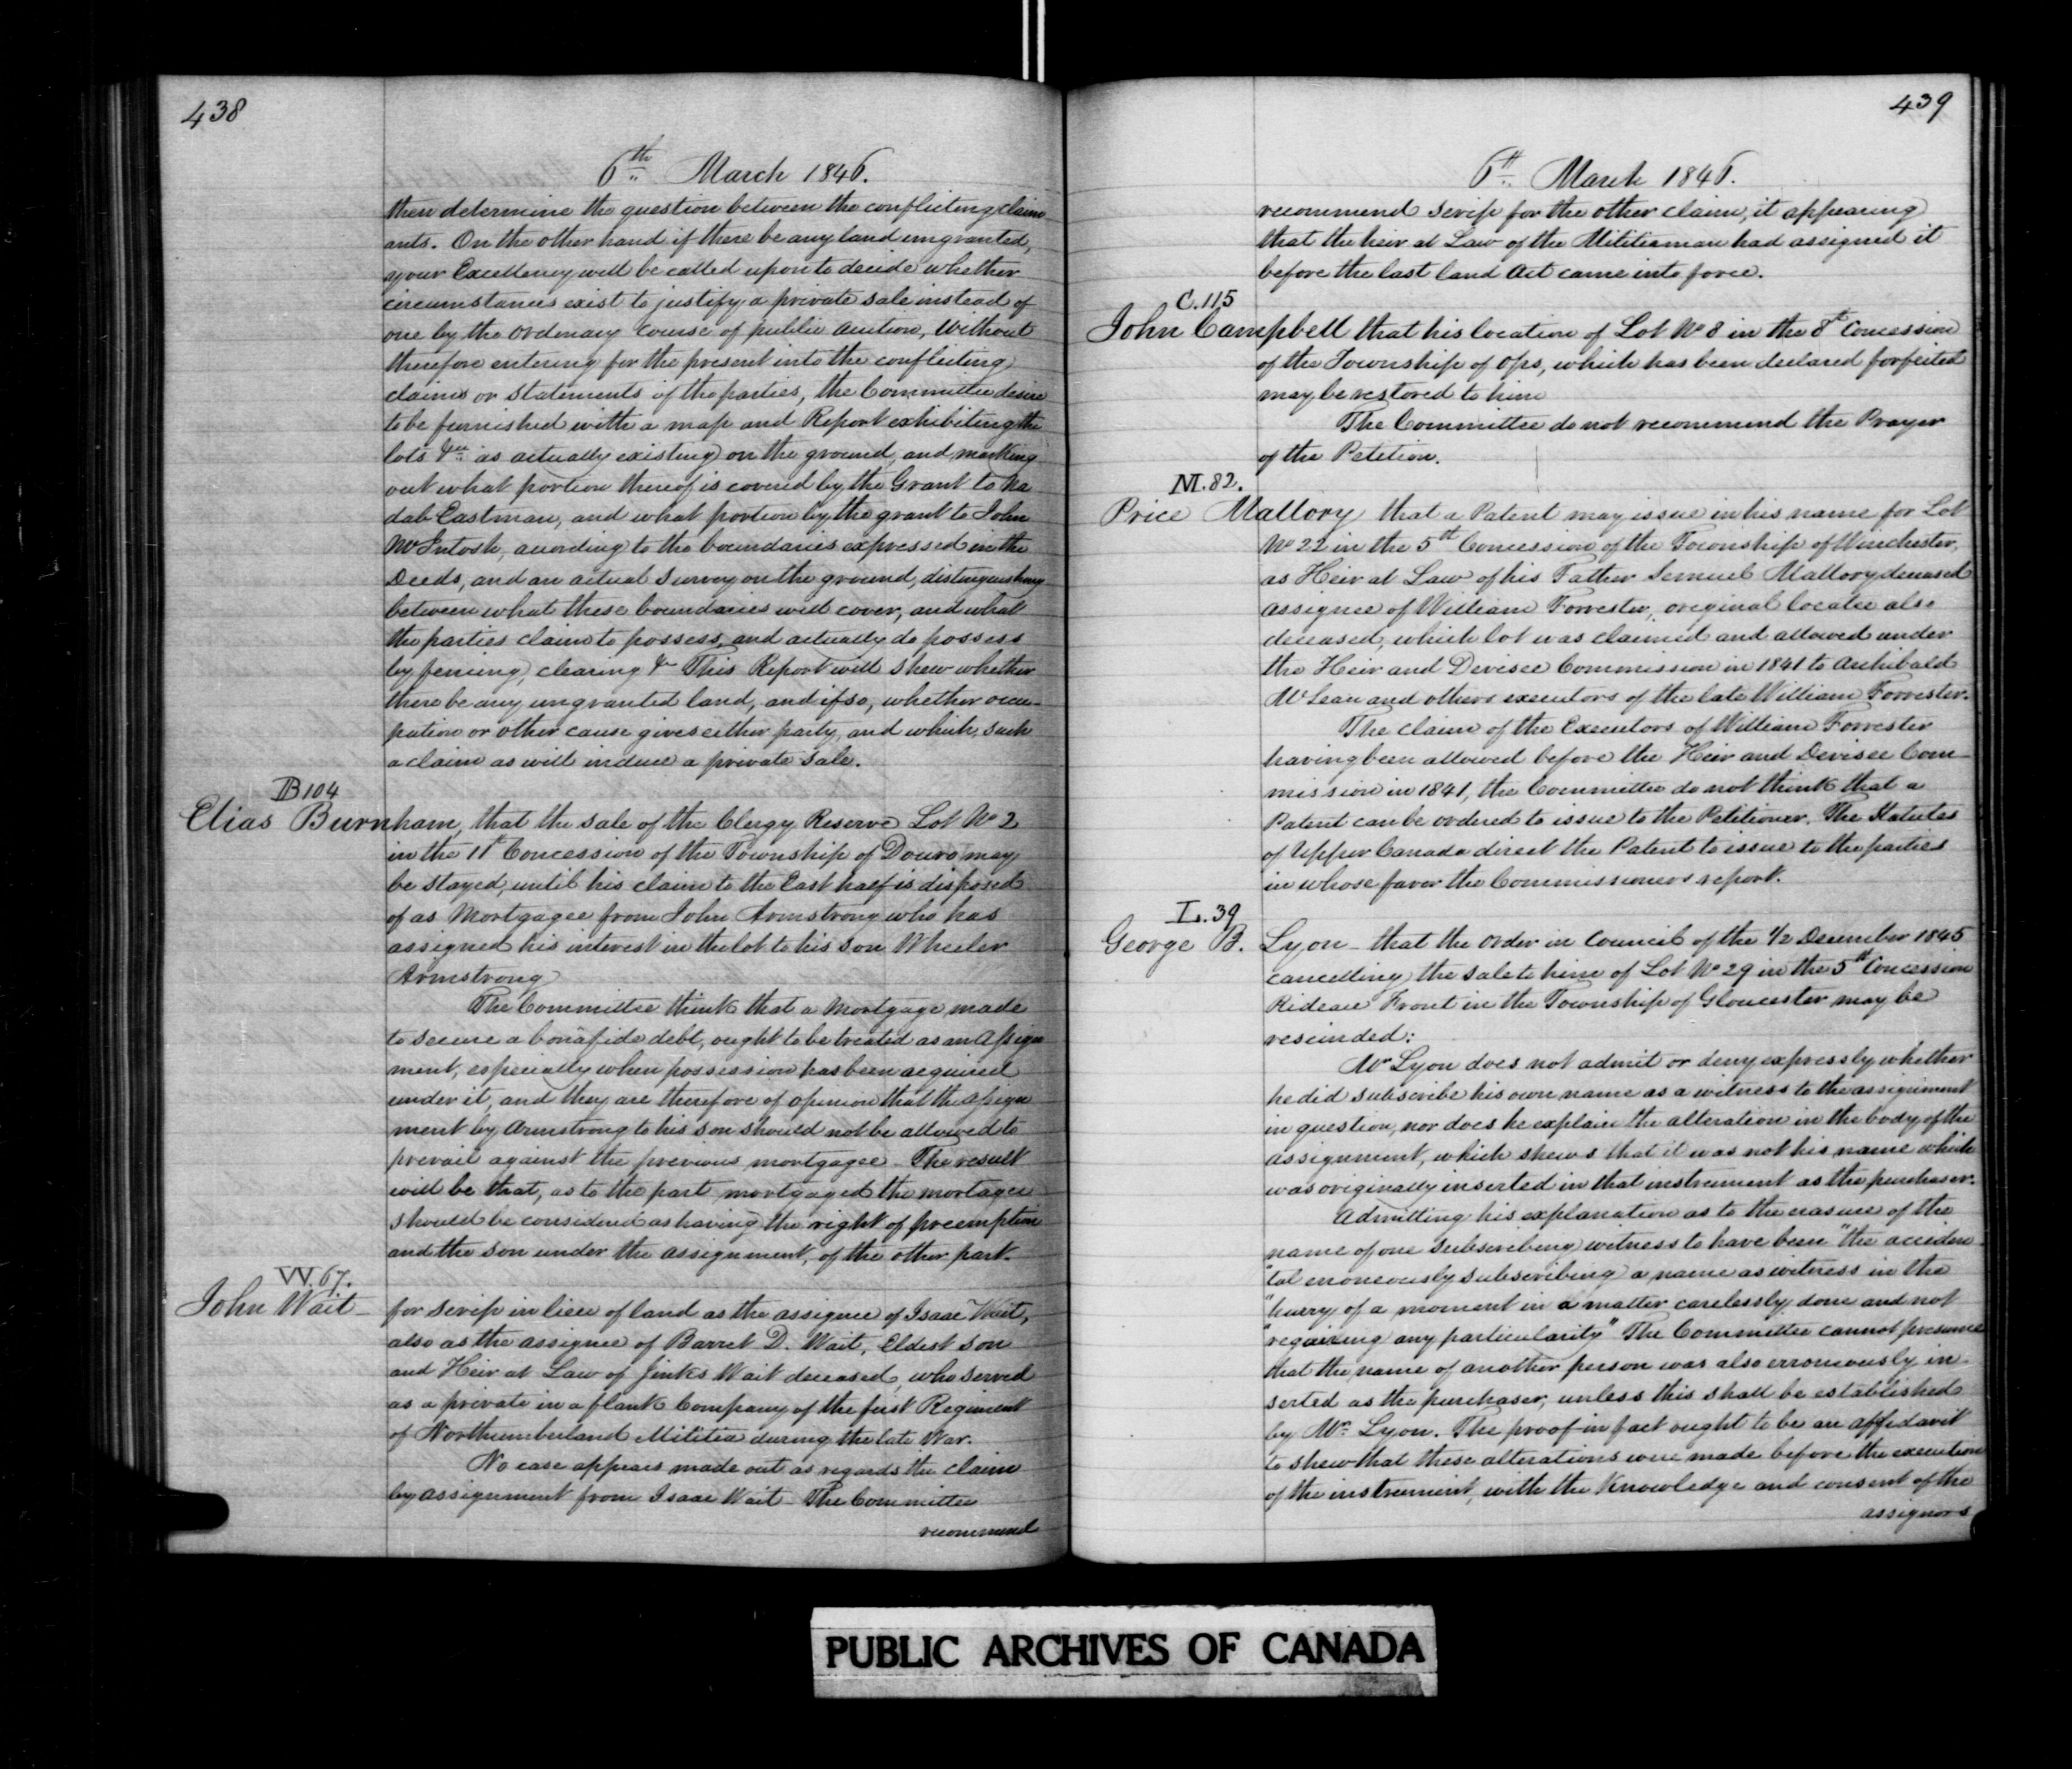 438
6th March 1846.
then determine the question between the conflicting claim-
ants. On the other hand if there be any land ungranted,
your Excellency will be called upon to decide whether
circumstances exist to justify a private sale instead of
one by the ordinary course of public auction, Without
therefore entering for the present into the conflicting
claims or statements of the parties, the Committee desire
to be furnished with a map and Report exhibiting the
lots &c as actually existing on the ground, and marking
out what portion thereof is covered by the Grant to Na
dab Eastman, and what portion by the grant to John
McIntosh, according to the boundaries expressed in the
Deeds, and an actual Survey on the ground, distinguishing
between what these boundaries will cover, and what
the parties claim to possess, and actually do possess
by fencing, clearing &c This Report will shew whether
there be any ungranted land, and if so, whether occu-
pation or other cause gives either party, and which, such
a claim as will induce a private sale.
B104
Elias Burnham, that the sale of the Clergy Reserve Lot No 2
in the 11th Concession of the Township of Douro may
be stayed, until his claim to the East half is disposed
of as Mortgagee from John Armstrong who has
assigned his interest in the lot to his son Wheeler
Armstrong
The Committee think that a Mortgage made
to secure a bonafide debt, ought to be treated as an Assign
ment, especially when possession has been acquired
under it, and they are therefore of opinion that the assign
ment by Armstrong to his son should not be allowed to
prevail against the previous mortgagee The result
will be that, as to the part mortgaged the mortagee
should be considered as having the right of preemption
and the son under the assignment, of the other part.
W. 67.
John Wait for scrip in lieu of land as the assignee of Isaac Wait,
also as the assignee of Barret D. Wait, Eldest son
and Heir at Law of Jinks Wait deceased, who served
as a private in a flank Company of the first Regiment
of Northumberland Militia during the late War.
No case appears made out as regards the claim
by assignment from Isaac Wait The Committee
recommend
439
6th March 1846.
recommend Scrip for the other claim, it appearing
that the heir at Law of the Militiaman had assigned it
before the last land Act came into force.
C. 115
John Campbell that his location of Lot No 8 in the 8th Concession
of the Township of Ops, which has been declared forfeited
may be restored to him
The Committee do not recommend the Prayer
of the Petition.
M. 82.
Price Mallory that a Patent may issue in his name for Lot
No 22 in the 5th Concession of the Township of Winchester,
as Heir at Law of his Father Lemuel Mallory deceased
assignee of William Forrester, original locatee also
deceased, which lot was claimed and allowed under
the Heir and Devisee Commission in 1841 to Archibald
McLean and others executors of the late William Forrester.
The claim of the Executors of William Forrester
having been allowed before the Heir and Devisee Com-
mission in 1841, the Committee do not think that a
Patent can be ordered to issue to the Petitioner. The Statutes
of Upper Canada direct the Patent to issue to the parties
in whose favor the Commissioners report.
L. 39
George B. Lyon - that the order in Council of the 1/2 December 1845
cancelling the sale to him of Lot No 29 in the 5th Concession
Rideau Front in the Township of Gloucester may be
rescinded:
Mr Lyon does not admit or deny expressly whether
he did subscribe his own name as a witness to the assignment
in question, nor does he explain the alteration in the body of the
assignment, which shews that it was not his name which
was originally inserted in that instrument as the purchaser.
Admitting his explanation as to the erasure of the
name of one subscribing witness to have been "the acciden
"tal erroneously subscribing a name as witness in the
"hurry of a moment in a matter carelessly done and not
"requiring any particularity" The Committee cannot presume
that the name of another person was also erroneously in
serted as the purchaser, unless this shall be established
by Mr Lyon. The proof in fact ought to be an affidavit
to shew that these alterations were made before the execution
of the instrument, with the Knowledge and consent of the
assignors
PUBLIC ARCHIVES OF CANADA